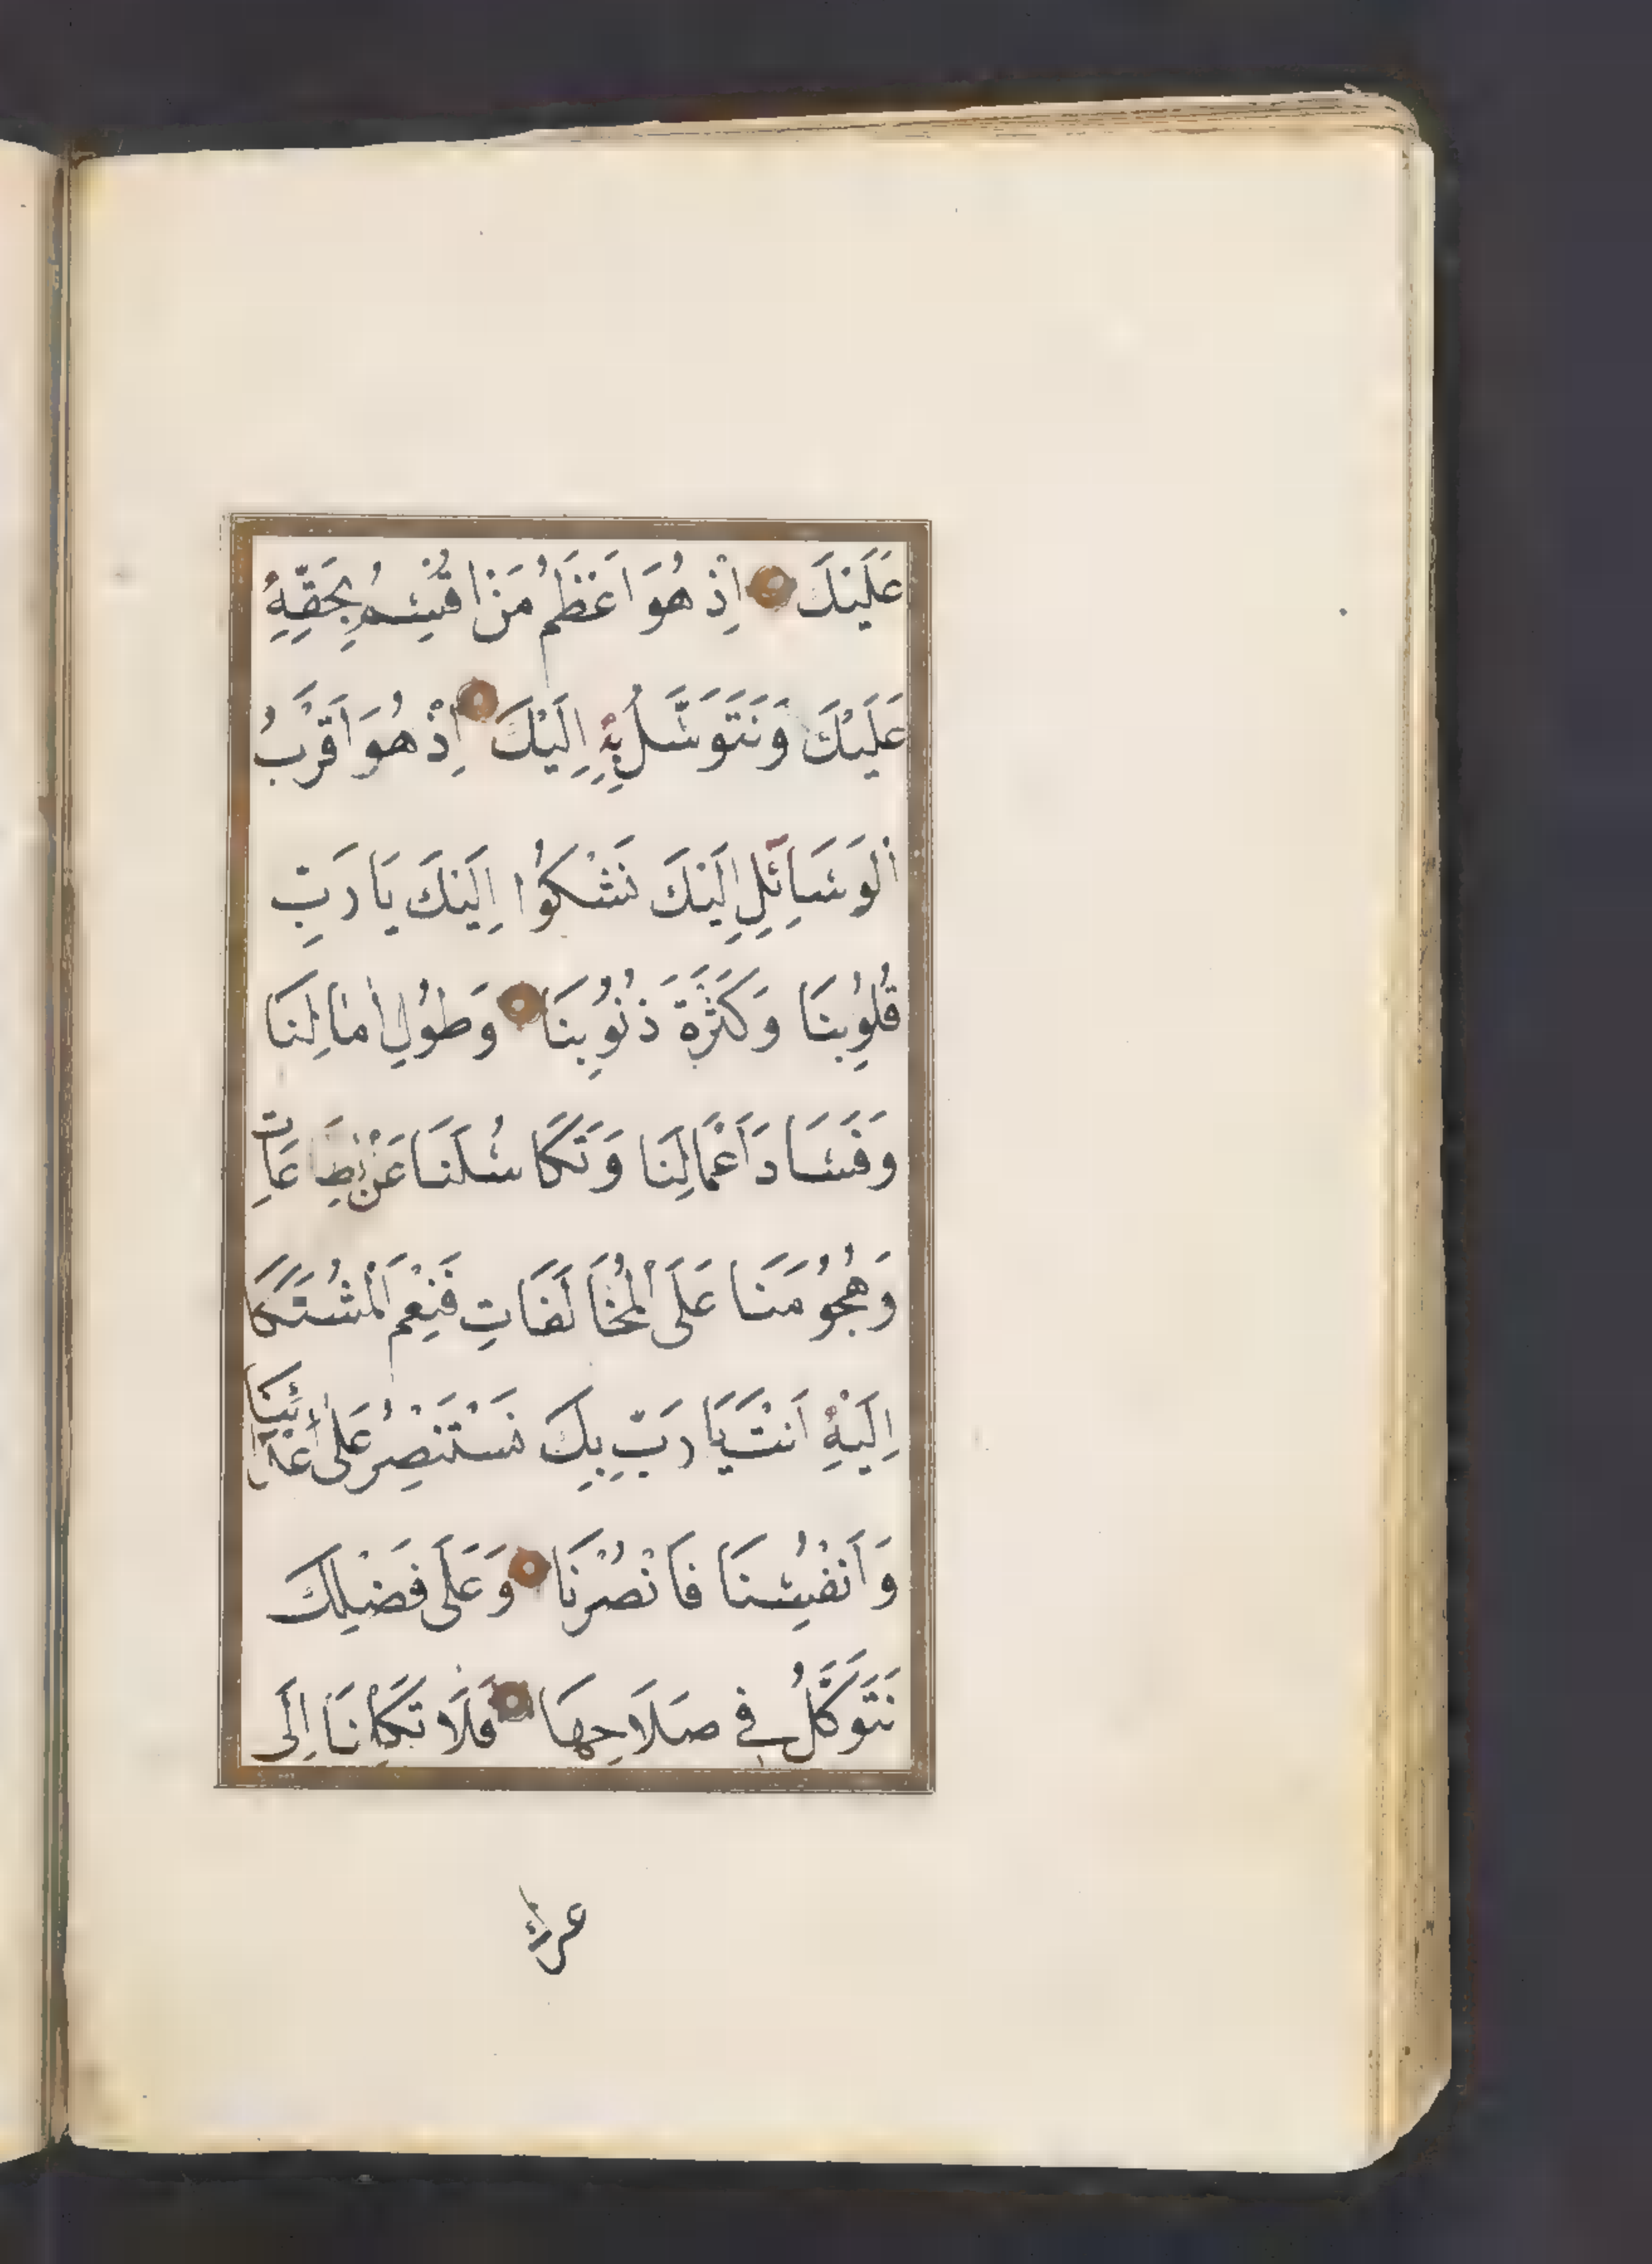 عَلَيْكَ ۞ اِذْ هُوَ اَعْظَمُ مَنْ اُقْسِمُ بِحَقِّهِ
عَلَيْكَ وَنَتَوَسَّلُ بِهِ اِلَيْكَ ۞ اِذْ هُوَ اَقْرَبُ
الْوَسَائِلِ اِلَيْكَ نَشْكُوا اِلَيْكَ يَا رَبِّ
قُلُوبِنَا وَكَثْرَةَ ذُنُوبِنَا ۞ وَطُولِ اٰمَالِنَا
وَفَسَادَ اَعْمَالِنَا وَتَكَاسُلَنَا عَنْ
وَهُجُومَنَا عَلَى الْمُخَالَفَاتِ فَنِعْمَ الْمُشْتَكَا
اِلَيْهِ اَنْتَ يَا رَبِّ بِكَ نَسْتَنْصِرُ عَلٰى اَعْدَائِنَا
وَاَنْفُسِنَا فَانْصُرْنَا ۞ وَعَلٰى فَضْلِكَ
نَتَوَكَّلُ فِي صَلَاحِهَا ۞ فَلَا تَكِلْنَا اِلٰى